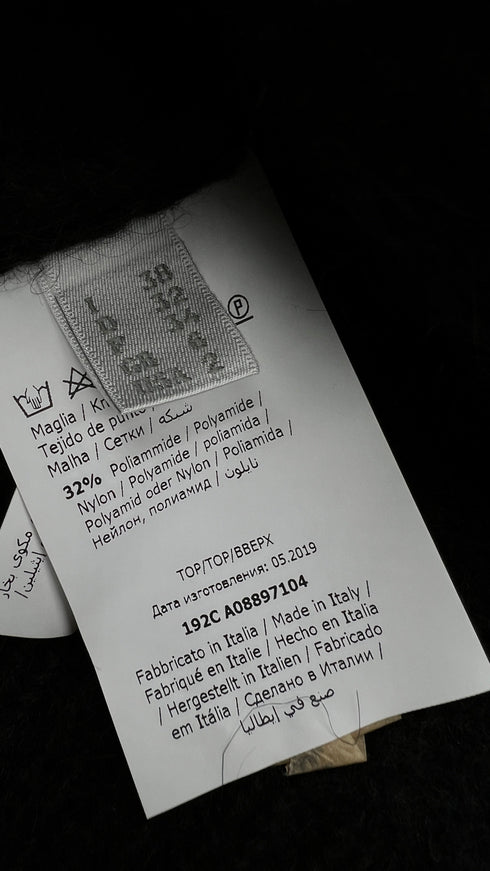 I 38
D 32
F 34
GB 6
USA 2
P
Maglia / Kn
Tejido de punto
Malha / Сетки / شبكة
32% Poliammide / Polyamide /
Nylon / Polyamide / poliamida /
Polyamid oder Nylon / Poliamida /
Нейлон, полиамид / نايلون
TOP/TOP/ВВЕРХ
Дата изготовления: 05.2019
192C A08897104
Fabbricato in Italia / Made in Italy /
Fabriqué en Italie / Hecho en Italia
/ Hergestellt in Italien / Fabricado
em Itália / Сделано в Италии /
صنع في إيطاليا
مكوى بخار